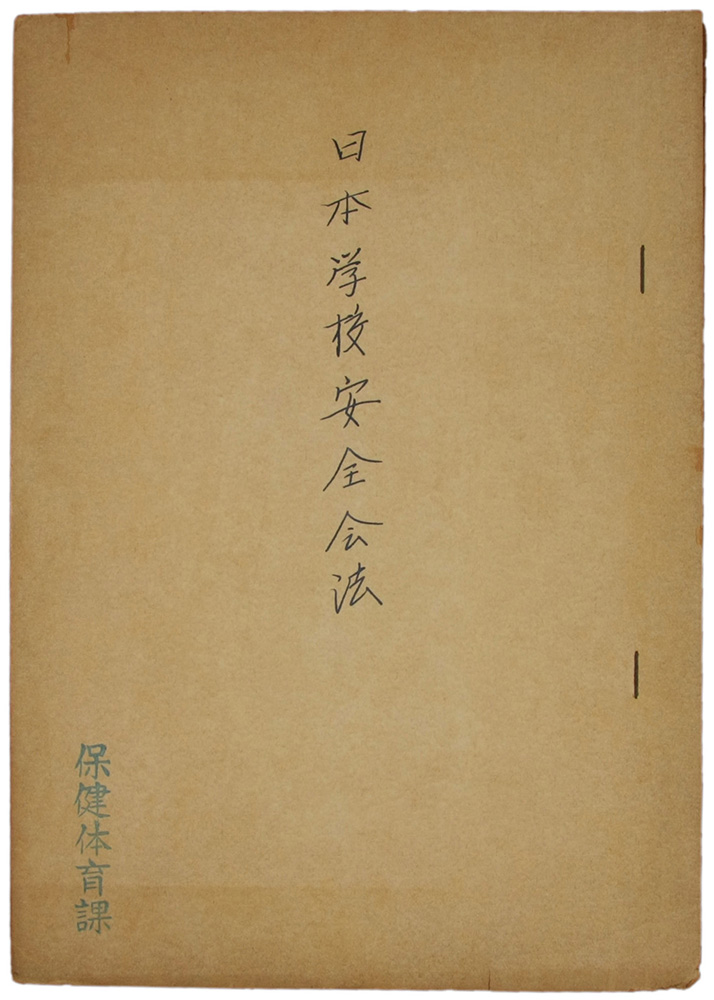 日本学校安全会法
保健体育課